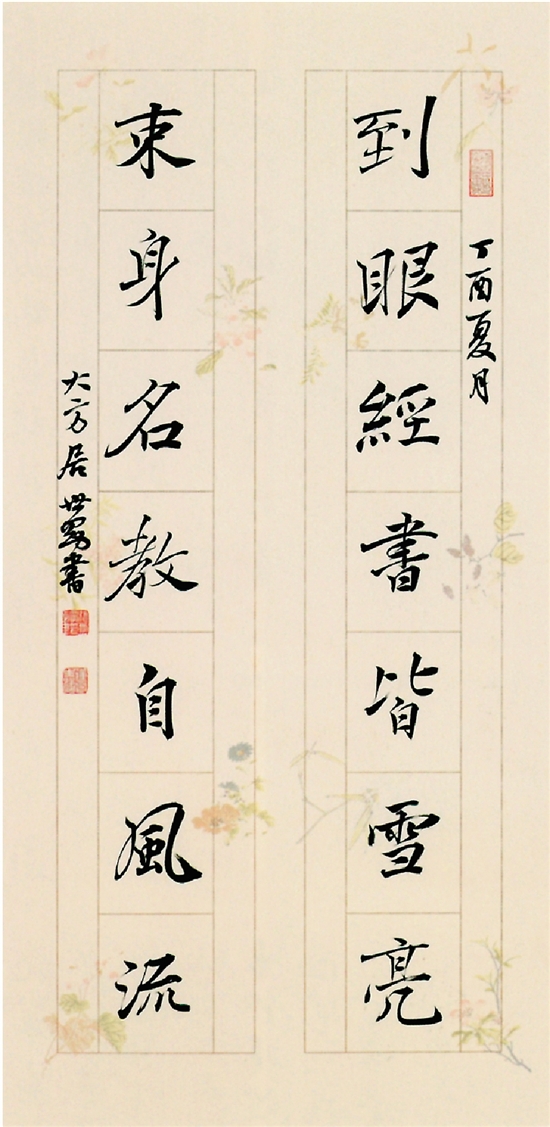 丁酉夏月
到眼經書皆雪亮
束身名教自風流
大方居世勇書